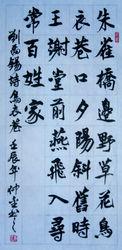 朱雀橋邊野草花烏
衣巷口夕陽斜舊時
王謝堂前燕飛入尋
常百姓家
劉禹錫詩烏衣巷 壬辰年